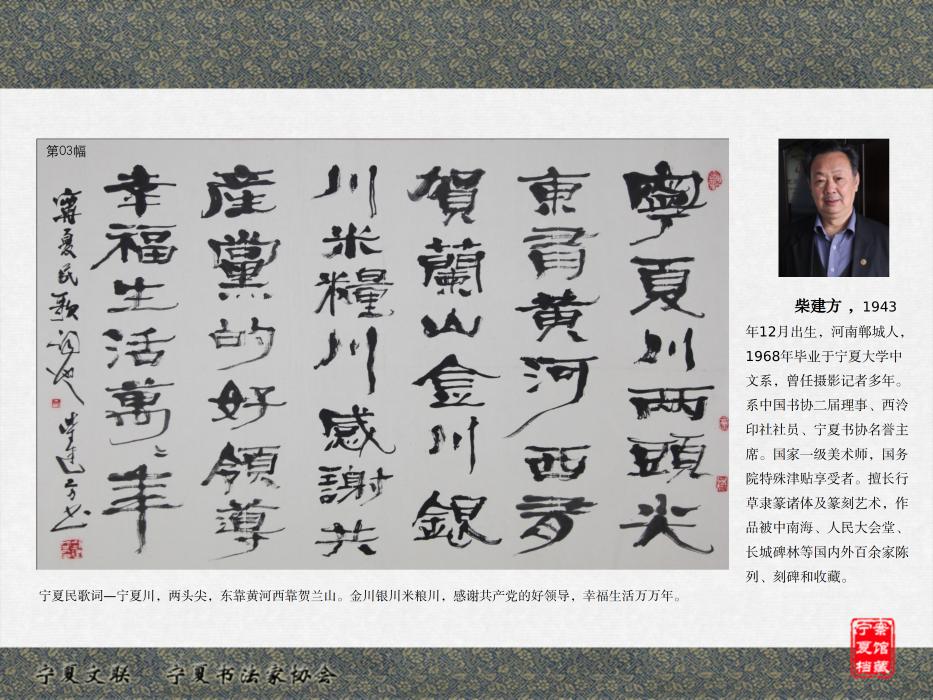 第03幅
寧夏川两頭尖
東黄河西
賀蘭山金川銀
川米糧川感謝共
産黨的好領導
幸福生活萬〻年
寧夏民歌詞
柴建方书
宁夏民歌词—宁夏川，两头尖，东靠黄河西靠贺兰山。金川银川米粮川，感谢共产党的好领导，幸福生活万万年。
柴建方，1943
年12月出生，河南郸城人，
1968年毕业于宁夏大学中
文系，曾任摄影记者多年。
系中国书协二届理事、西泠
印社社员、宁夏书协名誉主
席。国家一级美术师，国务
院特殊津贴享受者。擅长行
草隶篆诸体及篆刻艺术，作
品被中南海、人民大会堂、
长城碑林等国内外百余家陈
列、刻碑和收藏。
宁夏文联 宁夏书法家协会
宁夏档
案馆藏